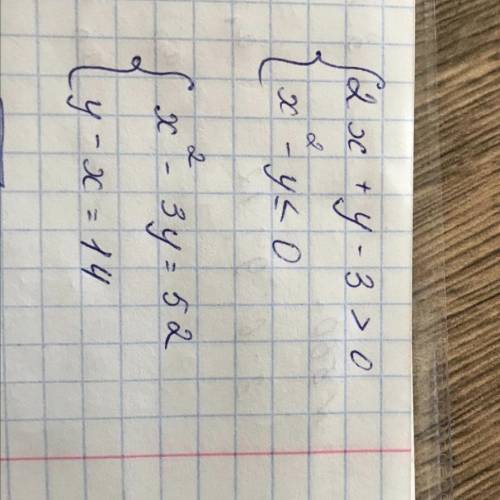 2x + y - 3 > 0
x² - y ≤ 0
x² - 3y = 52
y - x = 14